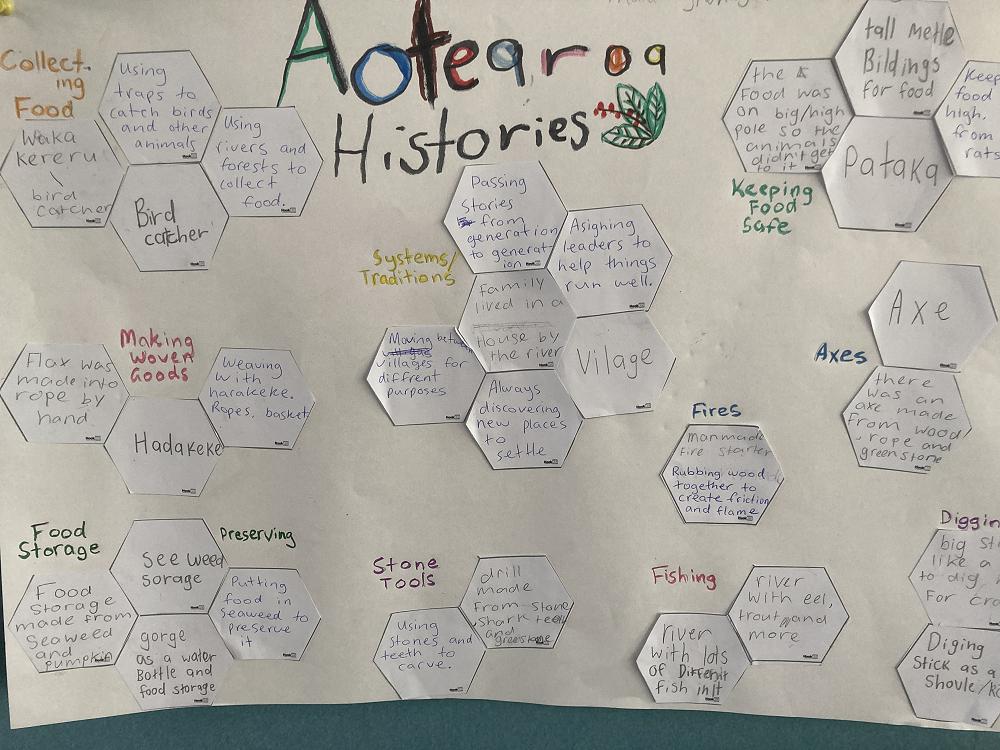 Aotearoa
Histories
Collect-
ing
Food
Using
traps to
catch birds
and other
animals
Waka
kereru
\
bird
catcher
Using
rivers and
forests to
collect
food.
Bird
catcher
Making
Woven
Goods
Flax was
made into
rope by
hand
Weaving
with
harakeke.
Ropes, basket
Hadakeke
Food
Storage
Preserving
See weed
sorage
Food
Storage
made from
Seaweed
and
pumpkin
Putting
food in
seaweed to
preserve
it
gorge
as a water
Bottle and
food storage
Systems/
Traditions
Passing
Stories
from
generation
to generat-
ion
Asighing
leaders to
help things
run well.
family
lived in a
House by
the river
Moving
villages for
diffrent
purposes
Vilage
Always
discovering
new places
to
settle
Stone
Tools
drill
made
From stone
shark teeth
and
greenstone
Using
stones and
teeth to
carve.
Keeping
Food
Safe
tall metle
Bildings
for food
the
Food was
on big/high
pole so the
animals
didn't get
to it
Keep
food
high,
from
rats
Pataka
Axes
Axe
there
was an
axe made
from wood
, rope and
greenstone
Fires
manmade
fire starter
Rubbing wood
together to
create friction
and flame
Fishing
river
with eel,
trout and
more
river
with lots
of Differnt
fish in it
Diggin
big sti
like a
to dig,
For cro
Diging
Stick as a
Shovle/